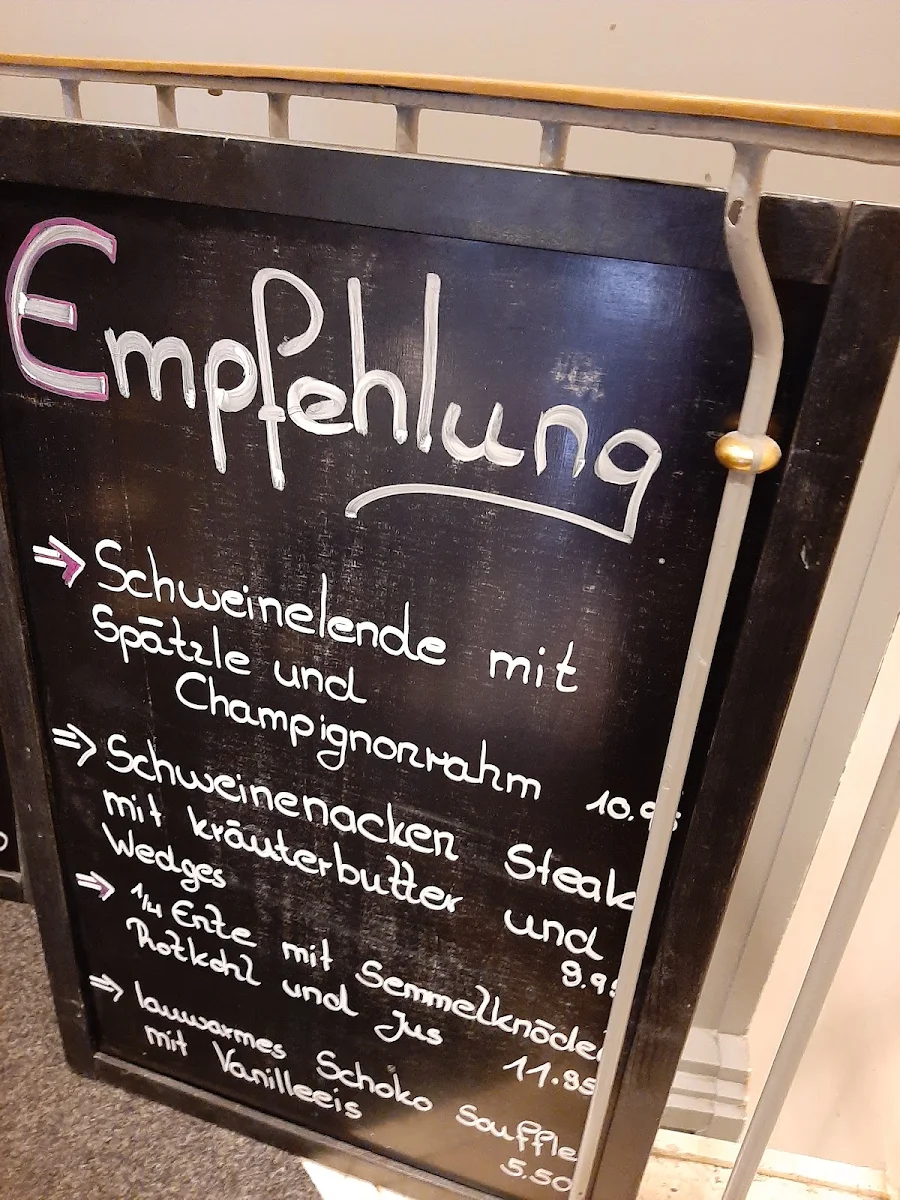 Empfehlung
⇒ Schweinelende mit
Spätzle und
Champignonrahm 10.95
⇒ Schweinenacken Steak
mit kräuterbutter und
Wedges 9.95
⇒ 1/4 Ente mit Semmelknödel
Rotkohl und Jus 11.95
⇒ lauwarmes Schoko Souffle
mit Vanilleeis 5.50